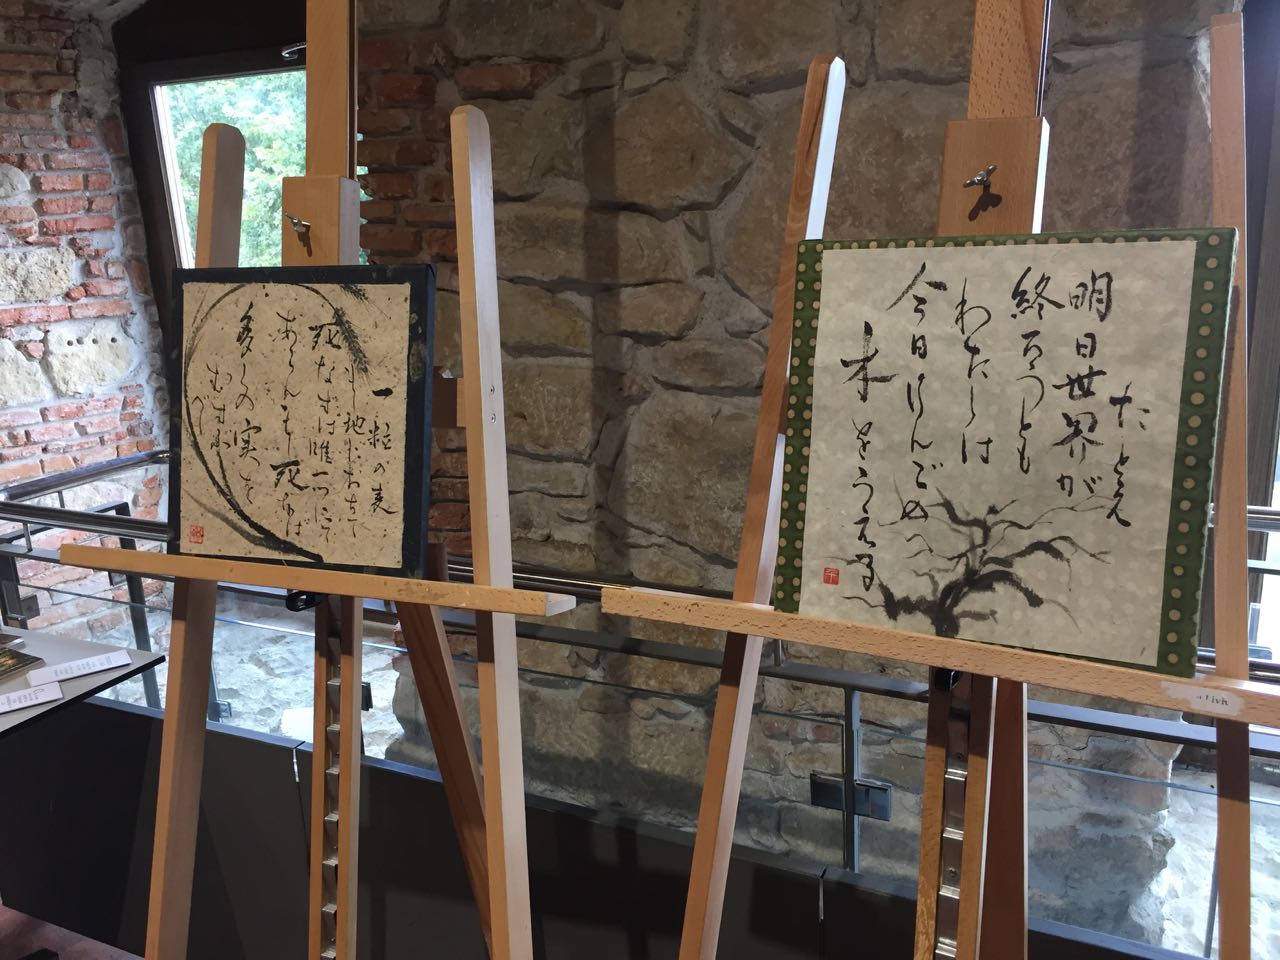 一粒の麦
もし地におちて
死なずば唯一つにて
あらんもし死なば
多くの実を
むすぶ
べし
たとえ
明日世界が
終ろうとも
わたしは
今日りんごの
木をうえる